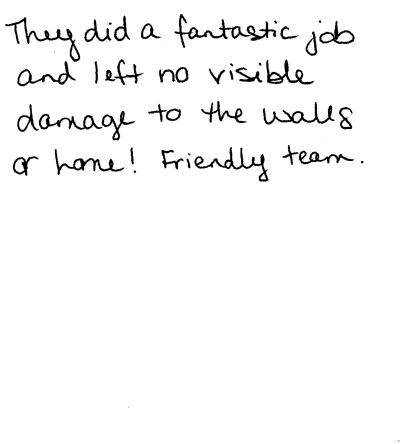 They did a fantastic job
and left no visible
damage to the walls
or home! Friendly team.